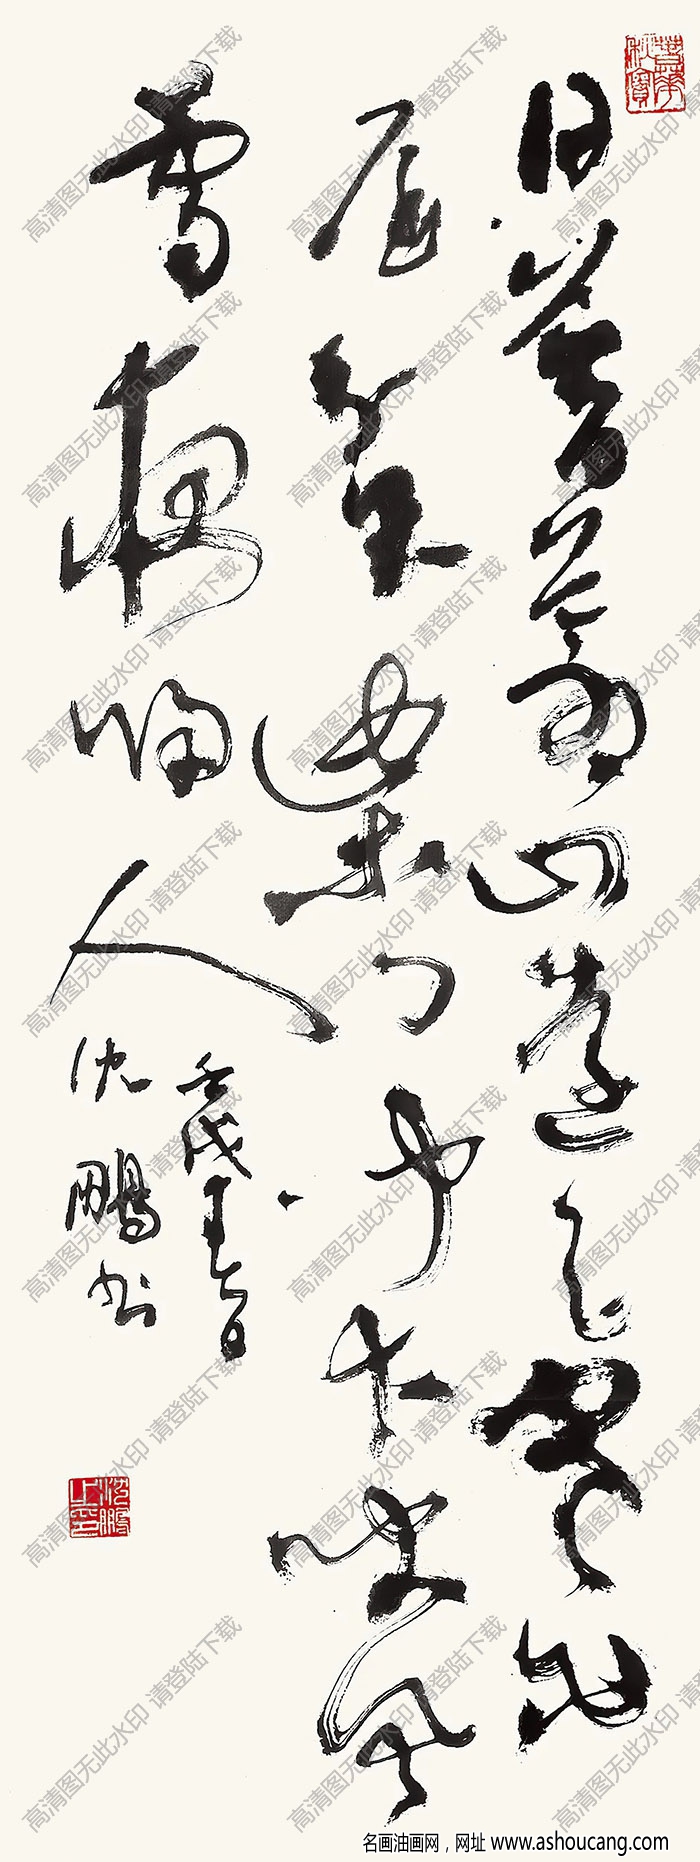 日暮苍山远天寒白
屋贫柴门闻犬吠风
雪夜归人
壬戌春日
沈鹏书
沈鹏之印
高清图无此水印 请登陆下载
名画油画网，网址 www.ashoucang.com